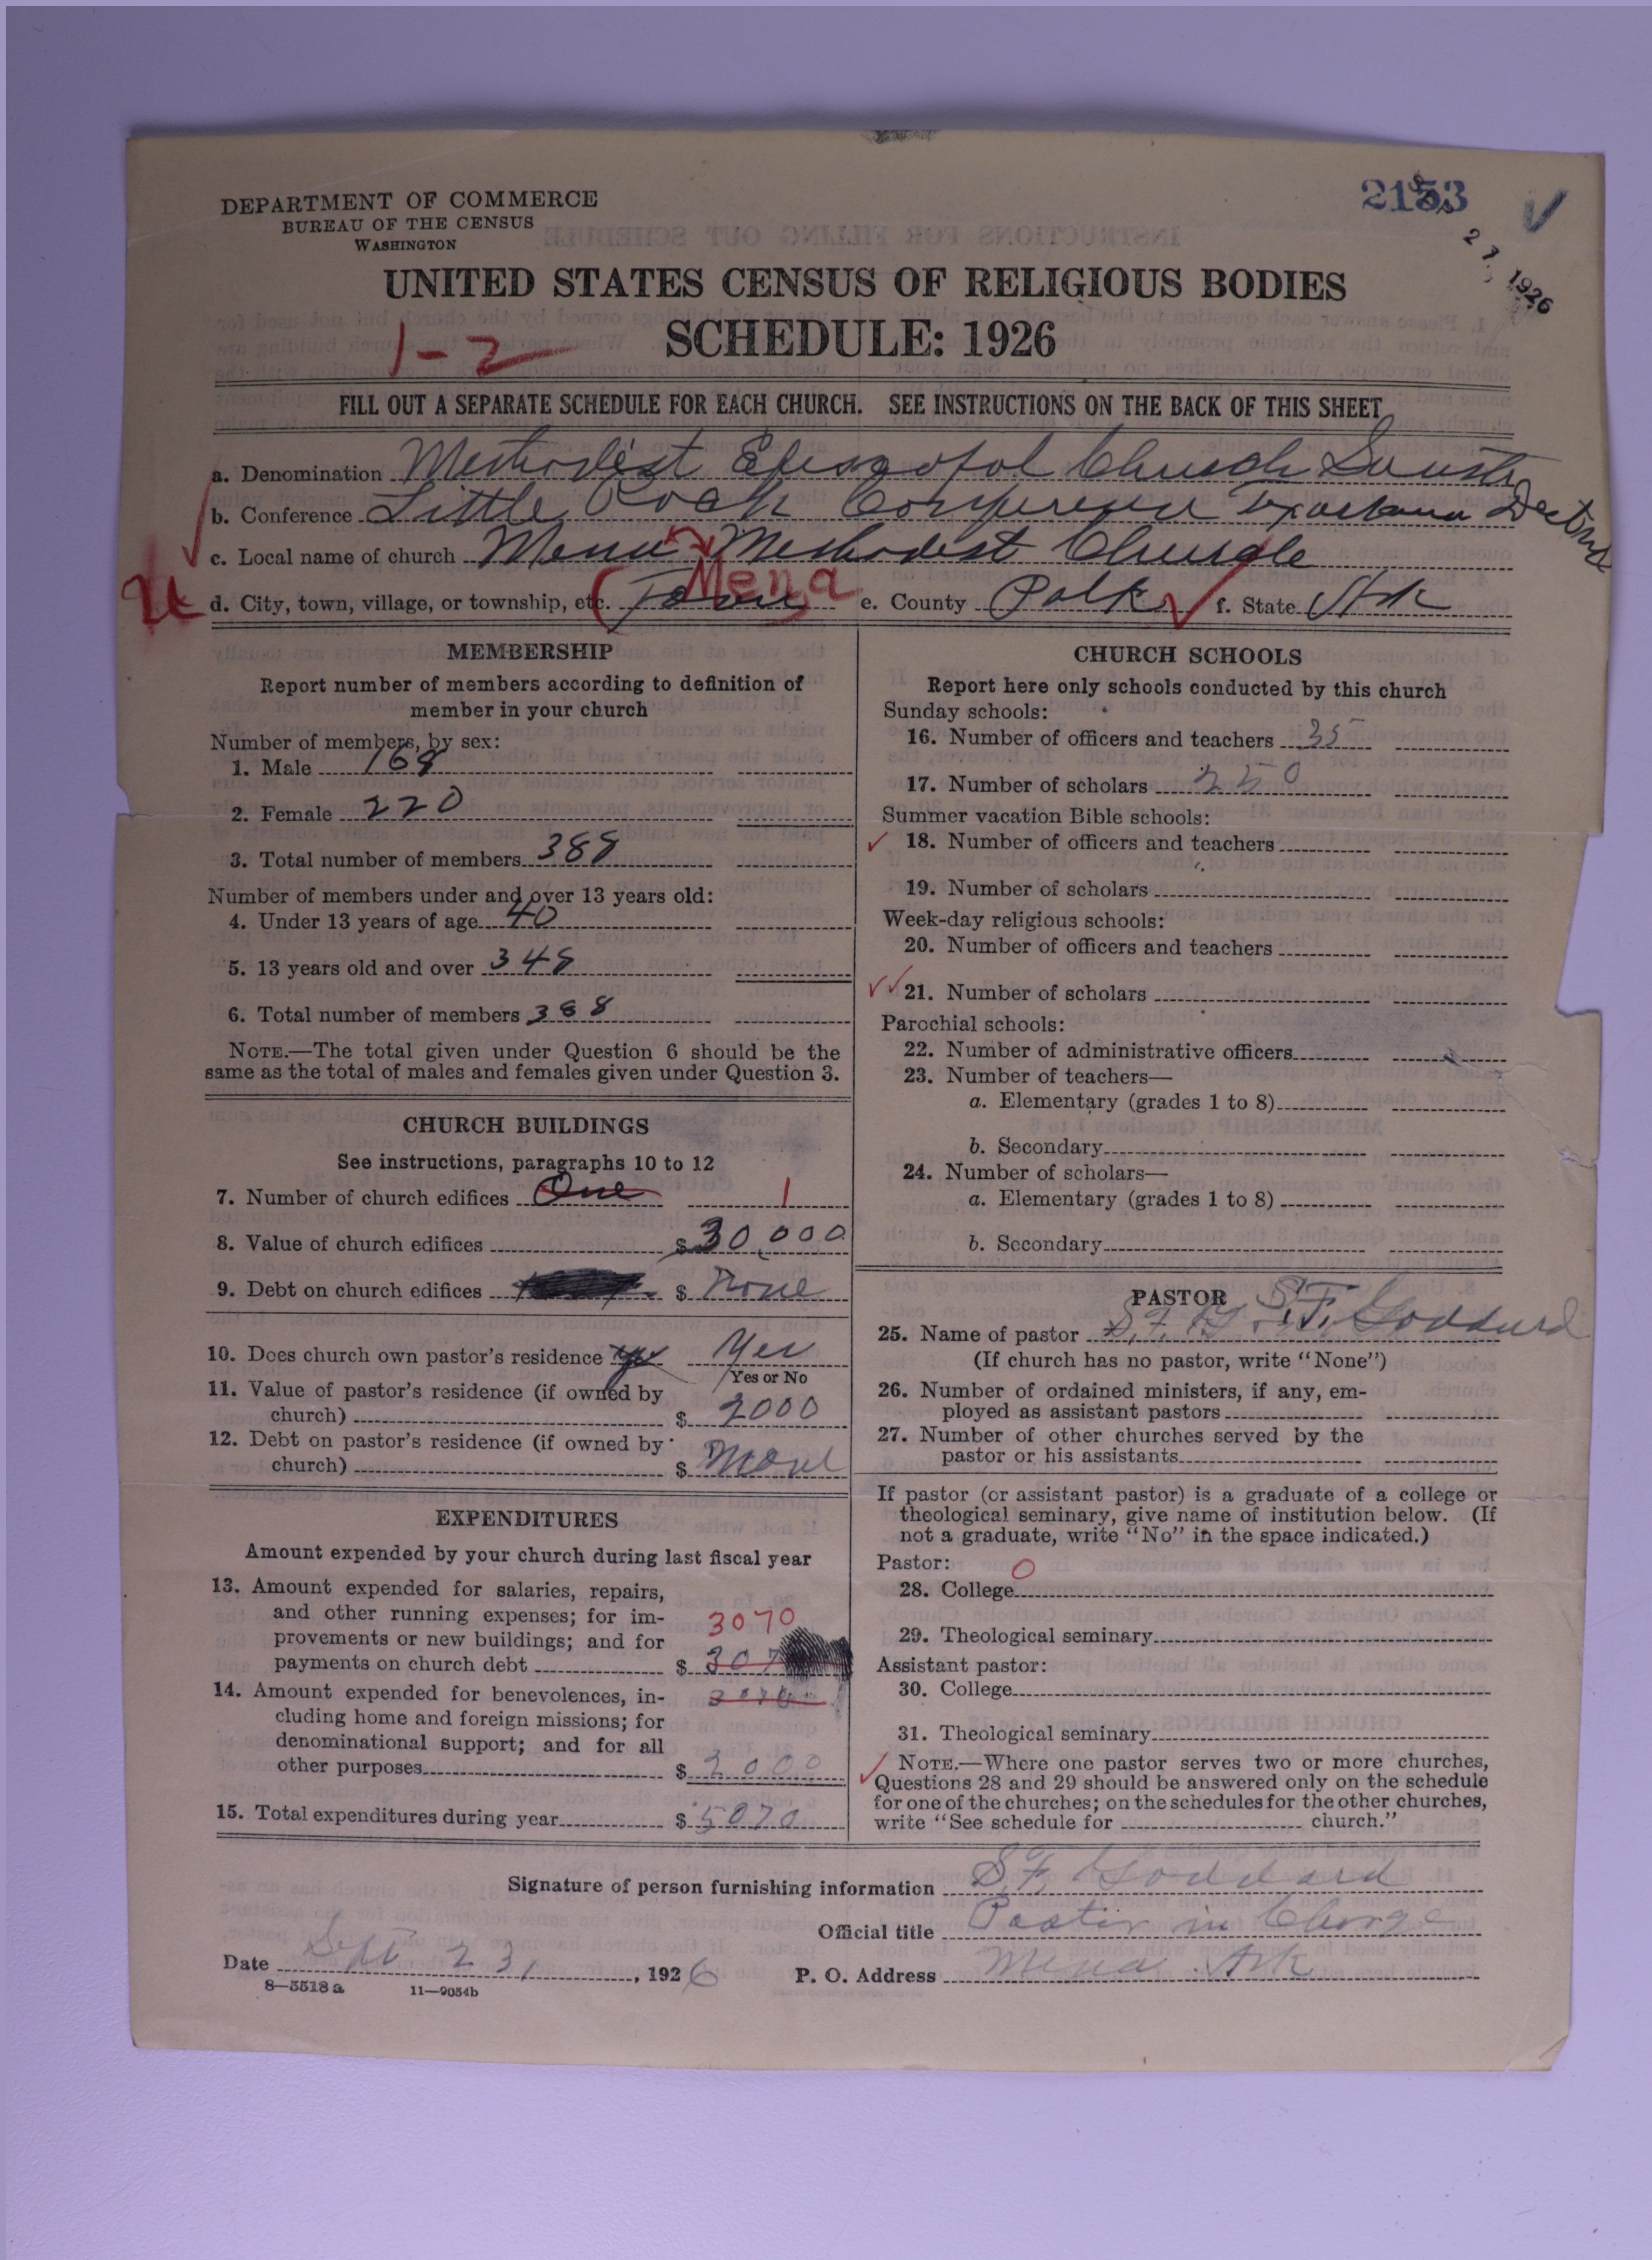 DEPARTMENT OF COMMERCE
BUREAU OF THE CENSUS
WASHINGTON
2153
27 1926
UNITED STATES CENSUS OF RELIGIOUS BODIES
SCHEDULE: 1926
1-2
FILL OUT A SEPARATE SCHEDULE FOR EACH CHURCH. SEE INSTRUCTIONS ON THE BACK OF THIS SHEET
a. Denomination Methodist Episcopal Church South
b. Conference Little Rock Conference Texarkana District
c. Local name of church Mena Methodist Church
d. City, town, village, or township, etc. Town Mena e. County Polk f. State Ark
MEMBERSHIP
Report number of members according to definition of
member in your church
Number of members, by sex:
1. Male 168
2. Female 220
3. Total number of members 388
Number of members under and over 13 years old:
4. Under 13 years of age 40
5. 13 years old and over 348
6. Total number of members 388
NOTE.—The total given under Question 6 should be the
same as the total of males and females given under Question 3.
CHURCH BUILDINGS
See instructions, paragraphs 10 to 12
7. Number of church edifices One 1
8. Value of church edifices $ 30,000
9. Debt on church edifices $ None
10. Does church own pastor's residence yes Yes
Yes or No
11. Value of pastor's residence (if owned by
church) $ 2000
12. Debt on pastor's residence (if owned by
church) $ None
EXPENDITURES
Amount expended by your church during last fiscal year
13. Amount expended for salaries, repairs,
and other running expenses; for im-
provements or new buildings; and for
payments on church debt $ 307
3070
14. Amount expended for benevolences, in-
cluding home and foreign missions; for
denominational support; and for all
other purposes $ 2000
15. Total expenditures during year $ 5070
CHURCH SCHOOLS
Report here only schools conducted by this church
Sunday schools:
16. Number of officers and teachers 35
17. Number of scholars 250
Summer vacation Bible schools:
18. Number of officers and teachers
19. Number of scholars
Week-day religious schools:
20. Number of officers and teachers
21. Number of scholars
Parochial schools:
22. Number of administrative officers
23. Number of teachers—
a. Elementary (grades 1 to 8)
b. Secondary
24. Number of scholars—
a. Elementary (grades 1 to 8)
b. Secondary
PASTOR
25. Name of pastor S. F. Goddard
(If church has no pastor, write "None")
26. Number of ordained ministers, if any, em-
ployed as assistant pastors
27. Number of other churches served by the
pastor or his assistants
If pastor (or assistant pastor) is a graduate of a college or
theological seminary, give name of institution below. (If
not a graduate, write "No" in the space indicated.)
Pastor: 0
28. College
29. Theological seminary
Assistant pastor:
30. College
31. Theological seminary
NOTE.—Where one pastor serves two or more churches,
Questions 28 and 29 should be answered only on the schedule
for one of the churches; on the schedules for the other churches,
write "See schedule for church."
Signature of person furnishing information S. F. Goddard
Official title Pastor in Charge
Date Sept 23, 1926 P. O. Address Mena Ark
8—5518 a 11—9054b